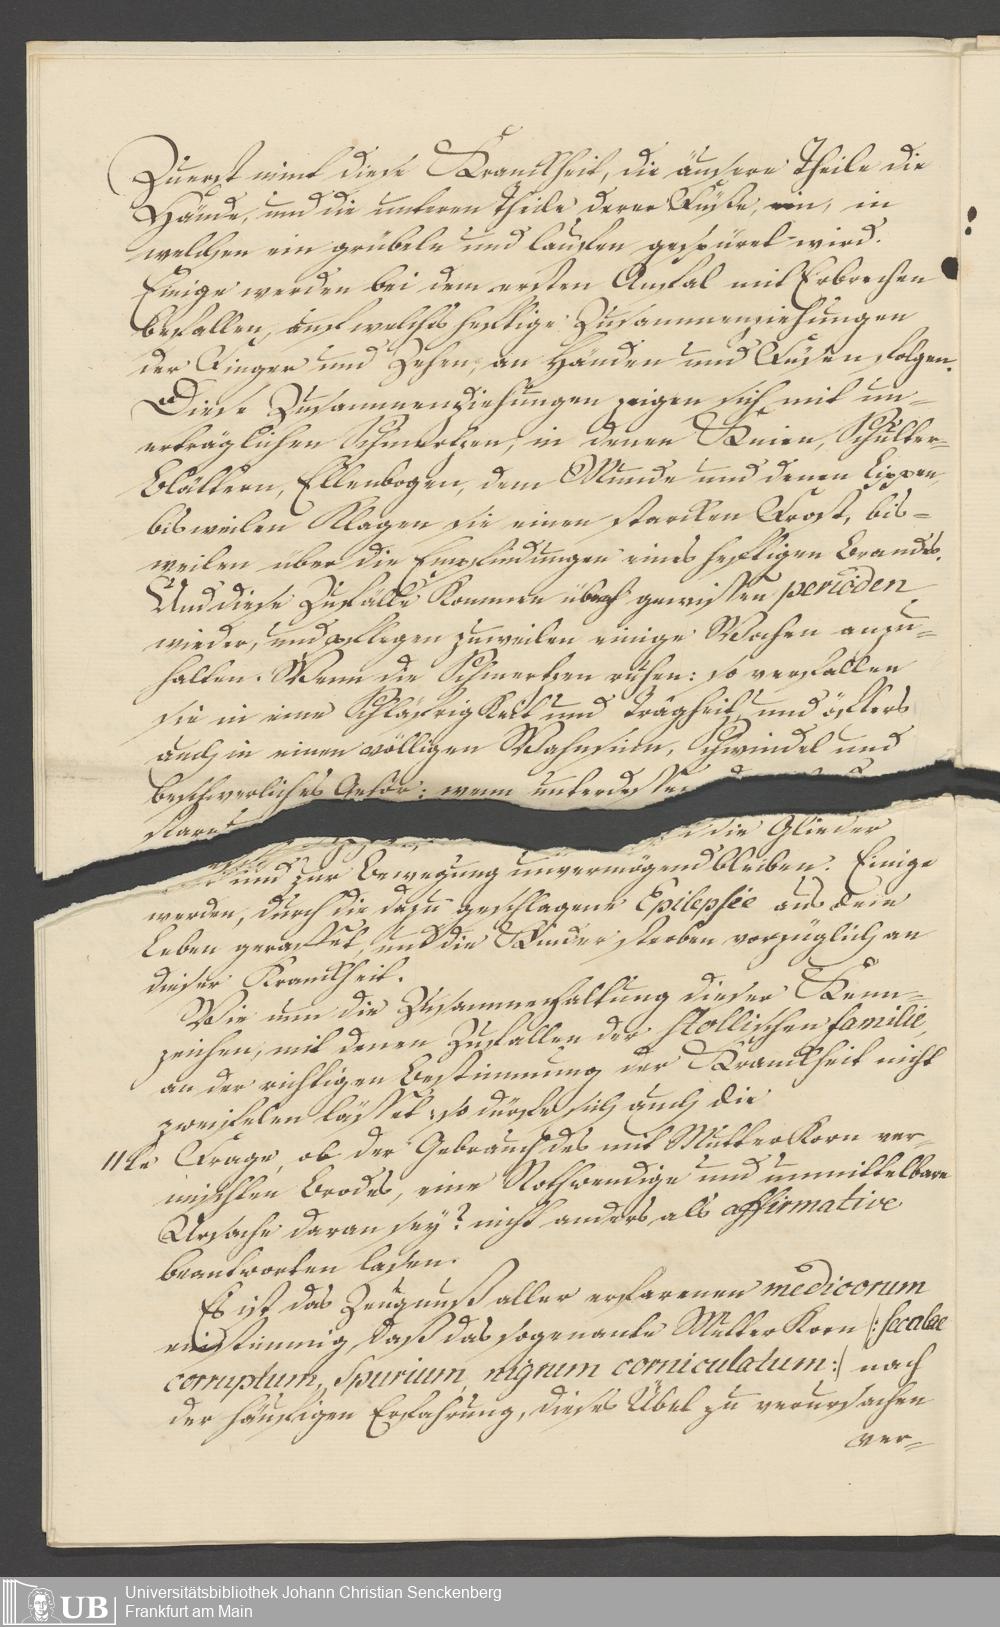 Zuerst nimt diese Kranckheit, die äusere Theile die
Hände, und die unteren Theile derer Füße, ein, in
welchen ein grübeln und lauffen gespüret wird.
Einige werden bei dem ersten Anfal mit Erbrechen
befallen, auf welches hefftige Zusammenziehungen
der Finger und Zehen, an Händen und Füsen folgen.
Diese Zusammenziehungen zeigen sich mit un-
erträglichen Schmertzen, in denen Knien, Schulter-
Blättern, Ellenbogen, dem Munde und denen Lippen,
bisweilen Klagen sie einen starcken Frost, bis-
weilen über die Empfindungen eines hefftigen Brandes.
Und diese Zufälle Kommen nach gewissen perioden
wieder, und pflegen zuweilen einige Wochen anzu-
halten. Wenn die Schmertzen ruhen: so verfallen
sie in eine Schläfrigkeit und Trägheit, und öffters
auch in einen völligen Wahnsinn, Schwindel und
beschwerliches Gehör: wenn unterdessen
starr
die Glieder
und zur Bewegung unvermögend bleiben. Einige
werden, durch die dazu geschlagene Epilepsie aus dem
Leben gerafft, und die Kinder sterben vorzüglich an
dieser Kranckheit.
Wie nun die Zusammenhaltung dieser Kenn-
zeichen, mit denen Zufällen der Nollischen familie,
an der richtigen Bestimmung der Kranckheit nicht
zweifelen lässet, so dürfte sich auch die
11te Frage, ob der Gebrauch des mit Mutter Korn ver-
mischten Brodes, eine Nothwendige und unmittelbare
Ursache daran sey? nicht anders als affirmative
beantworten lasen.
Es ist das Zeugnuß aller erfarenen medicorum
einstimmig, daß das sogenante Mutter Korn /: secalae
corruptum, spurium, nigrum corniculatum :/ nach
der häufigen Erfahrung, dieses Übel zu verursachen
ver-
UB Universitätsbibliothek Johann Christian Senckenberg
Frankfurt am Main